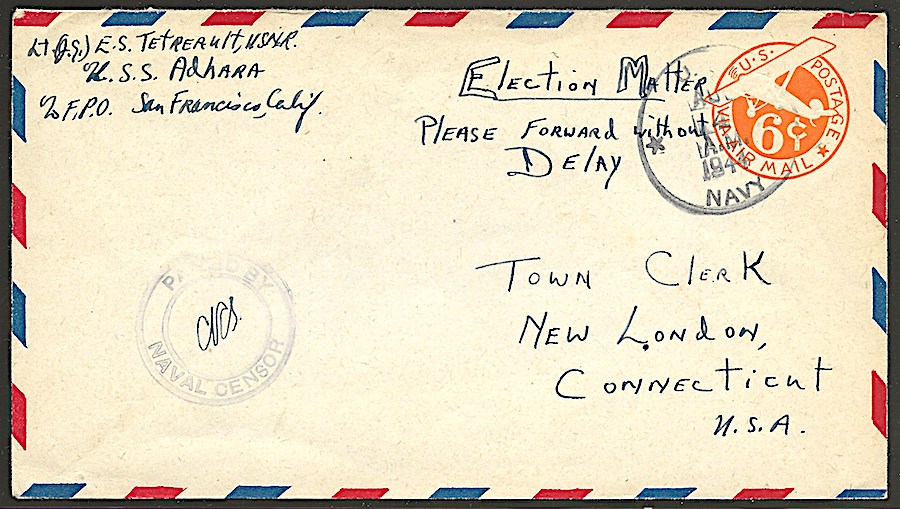 Lt (J.G.) E.S. Tetreault, USNR.
U.S.S. Adhara
℅ F.P.O. San Francisco, Calif.
Election Matter
Please Forward without
Delay
U.S. POSTAGE
VIA AIR MAIL
6¢
A.M.
NAVY
Town Clerk
New London,
Connecticut
U.S.A.
PASSED BY
NAVAL CENSOR